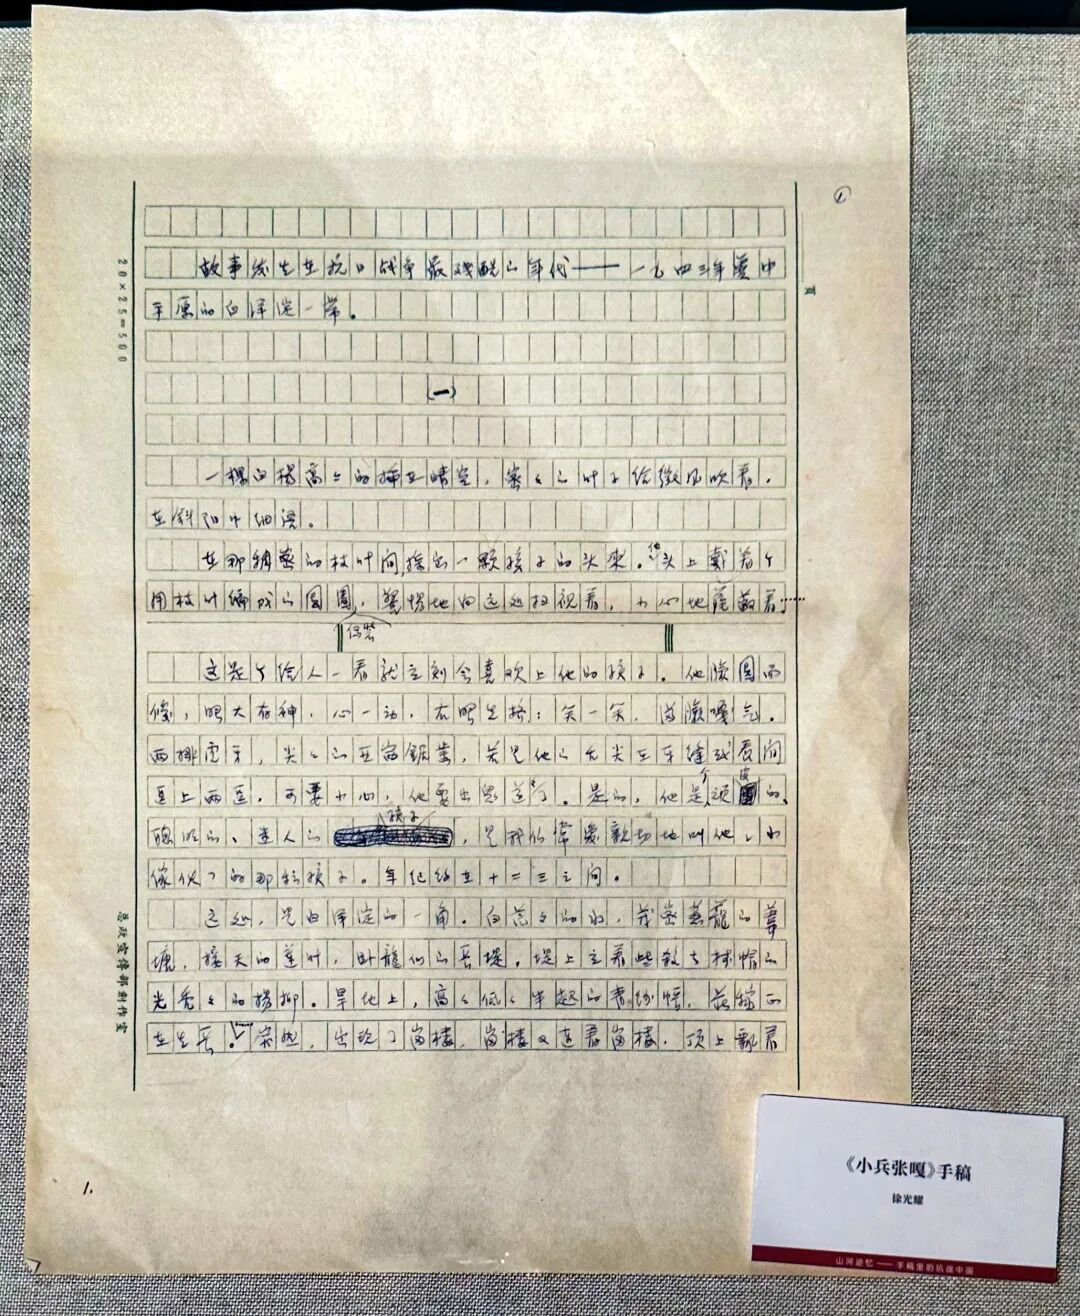 ①
20×25=500
页
故事发生在抗日战争最残酷的年代——一九四三年冀中
平原的白洋淀一带。
(一)
一棵白杨高高的插在晴空，密密的叶子给微风吹着，
在斜阳中细语。
在那稠密的枝叶间，探出一颗孩子的头来。他头上戴着个
用枝叶编成的圆圈，警惕地向远处扫视着，小心地荫蔽着……
伪装
这是个给人一看就立刻会喜欢上他的孩子。他脸圆而
俊，眼大有神，心一动，右眼先挤；笑一笑，满脸嘎气。
两排虎牙，尖尖的亚赛钢锥，若是他的舌尖在牙缝或唇间
逗上两逗，可要小心，他要出思道了。是的，他是个顽皮的、
聪明的、迷人的孩子，是我们常爱亲切地叫他
像伙子的那种孩子。年纪约在十二三之间。
这处，是白洋淀的一角。白茫茫的水，茂密葱茏的苇
塘，接天的莲叶，卧龙似的长堤。堤上立着些
光秃秃的杨柳。旱地上，高高低低半起的青纱帐，庄稼正
在生长。突然，出现了岗楼，岗楼又连着岗楼，顶上飘着
总政宣传部创作室
1.
《小兵张嘎》手稿
徐光耀
山河迹忆——手稿里的抗战中国